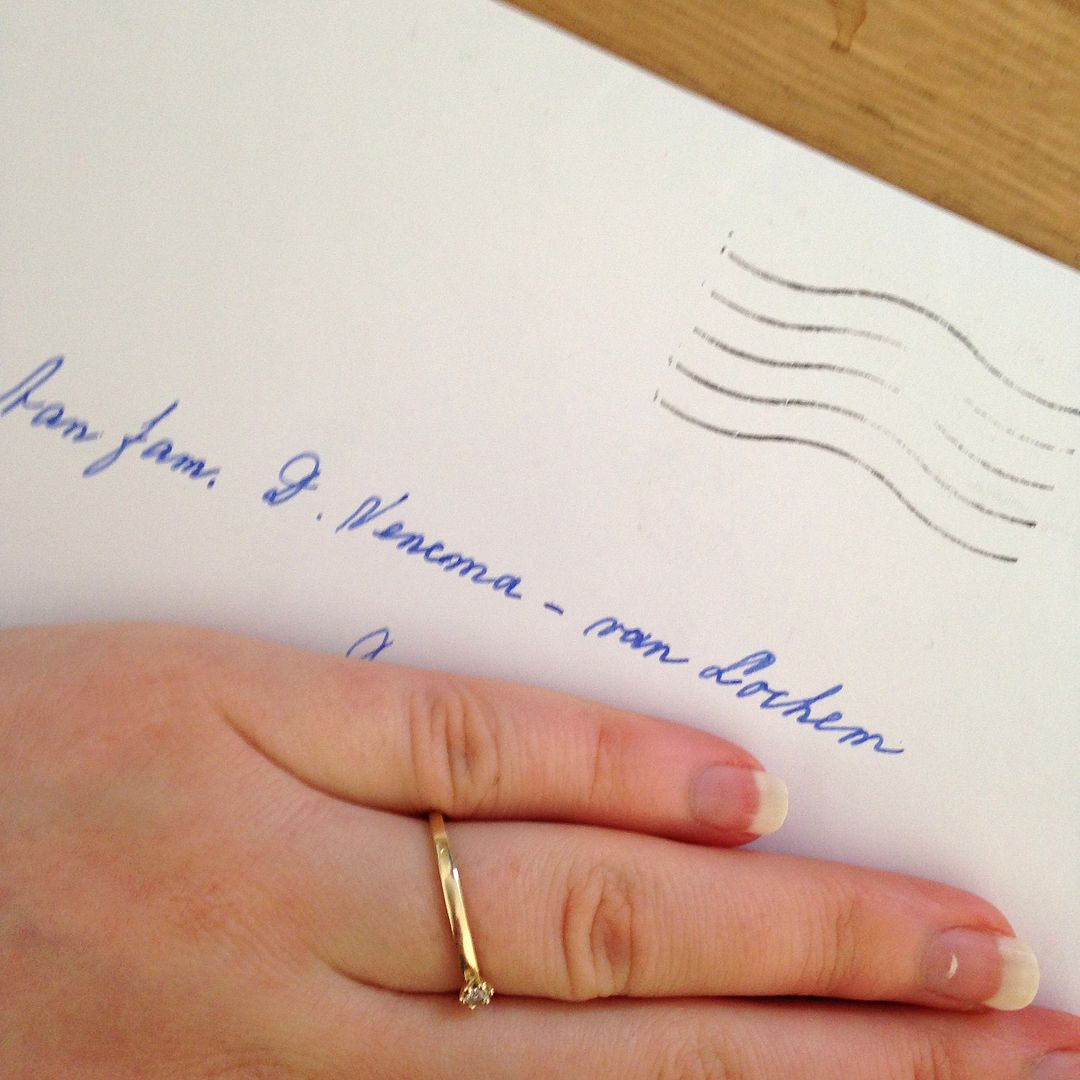 Aan fam. D. Venema - van Lochem